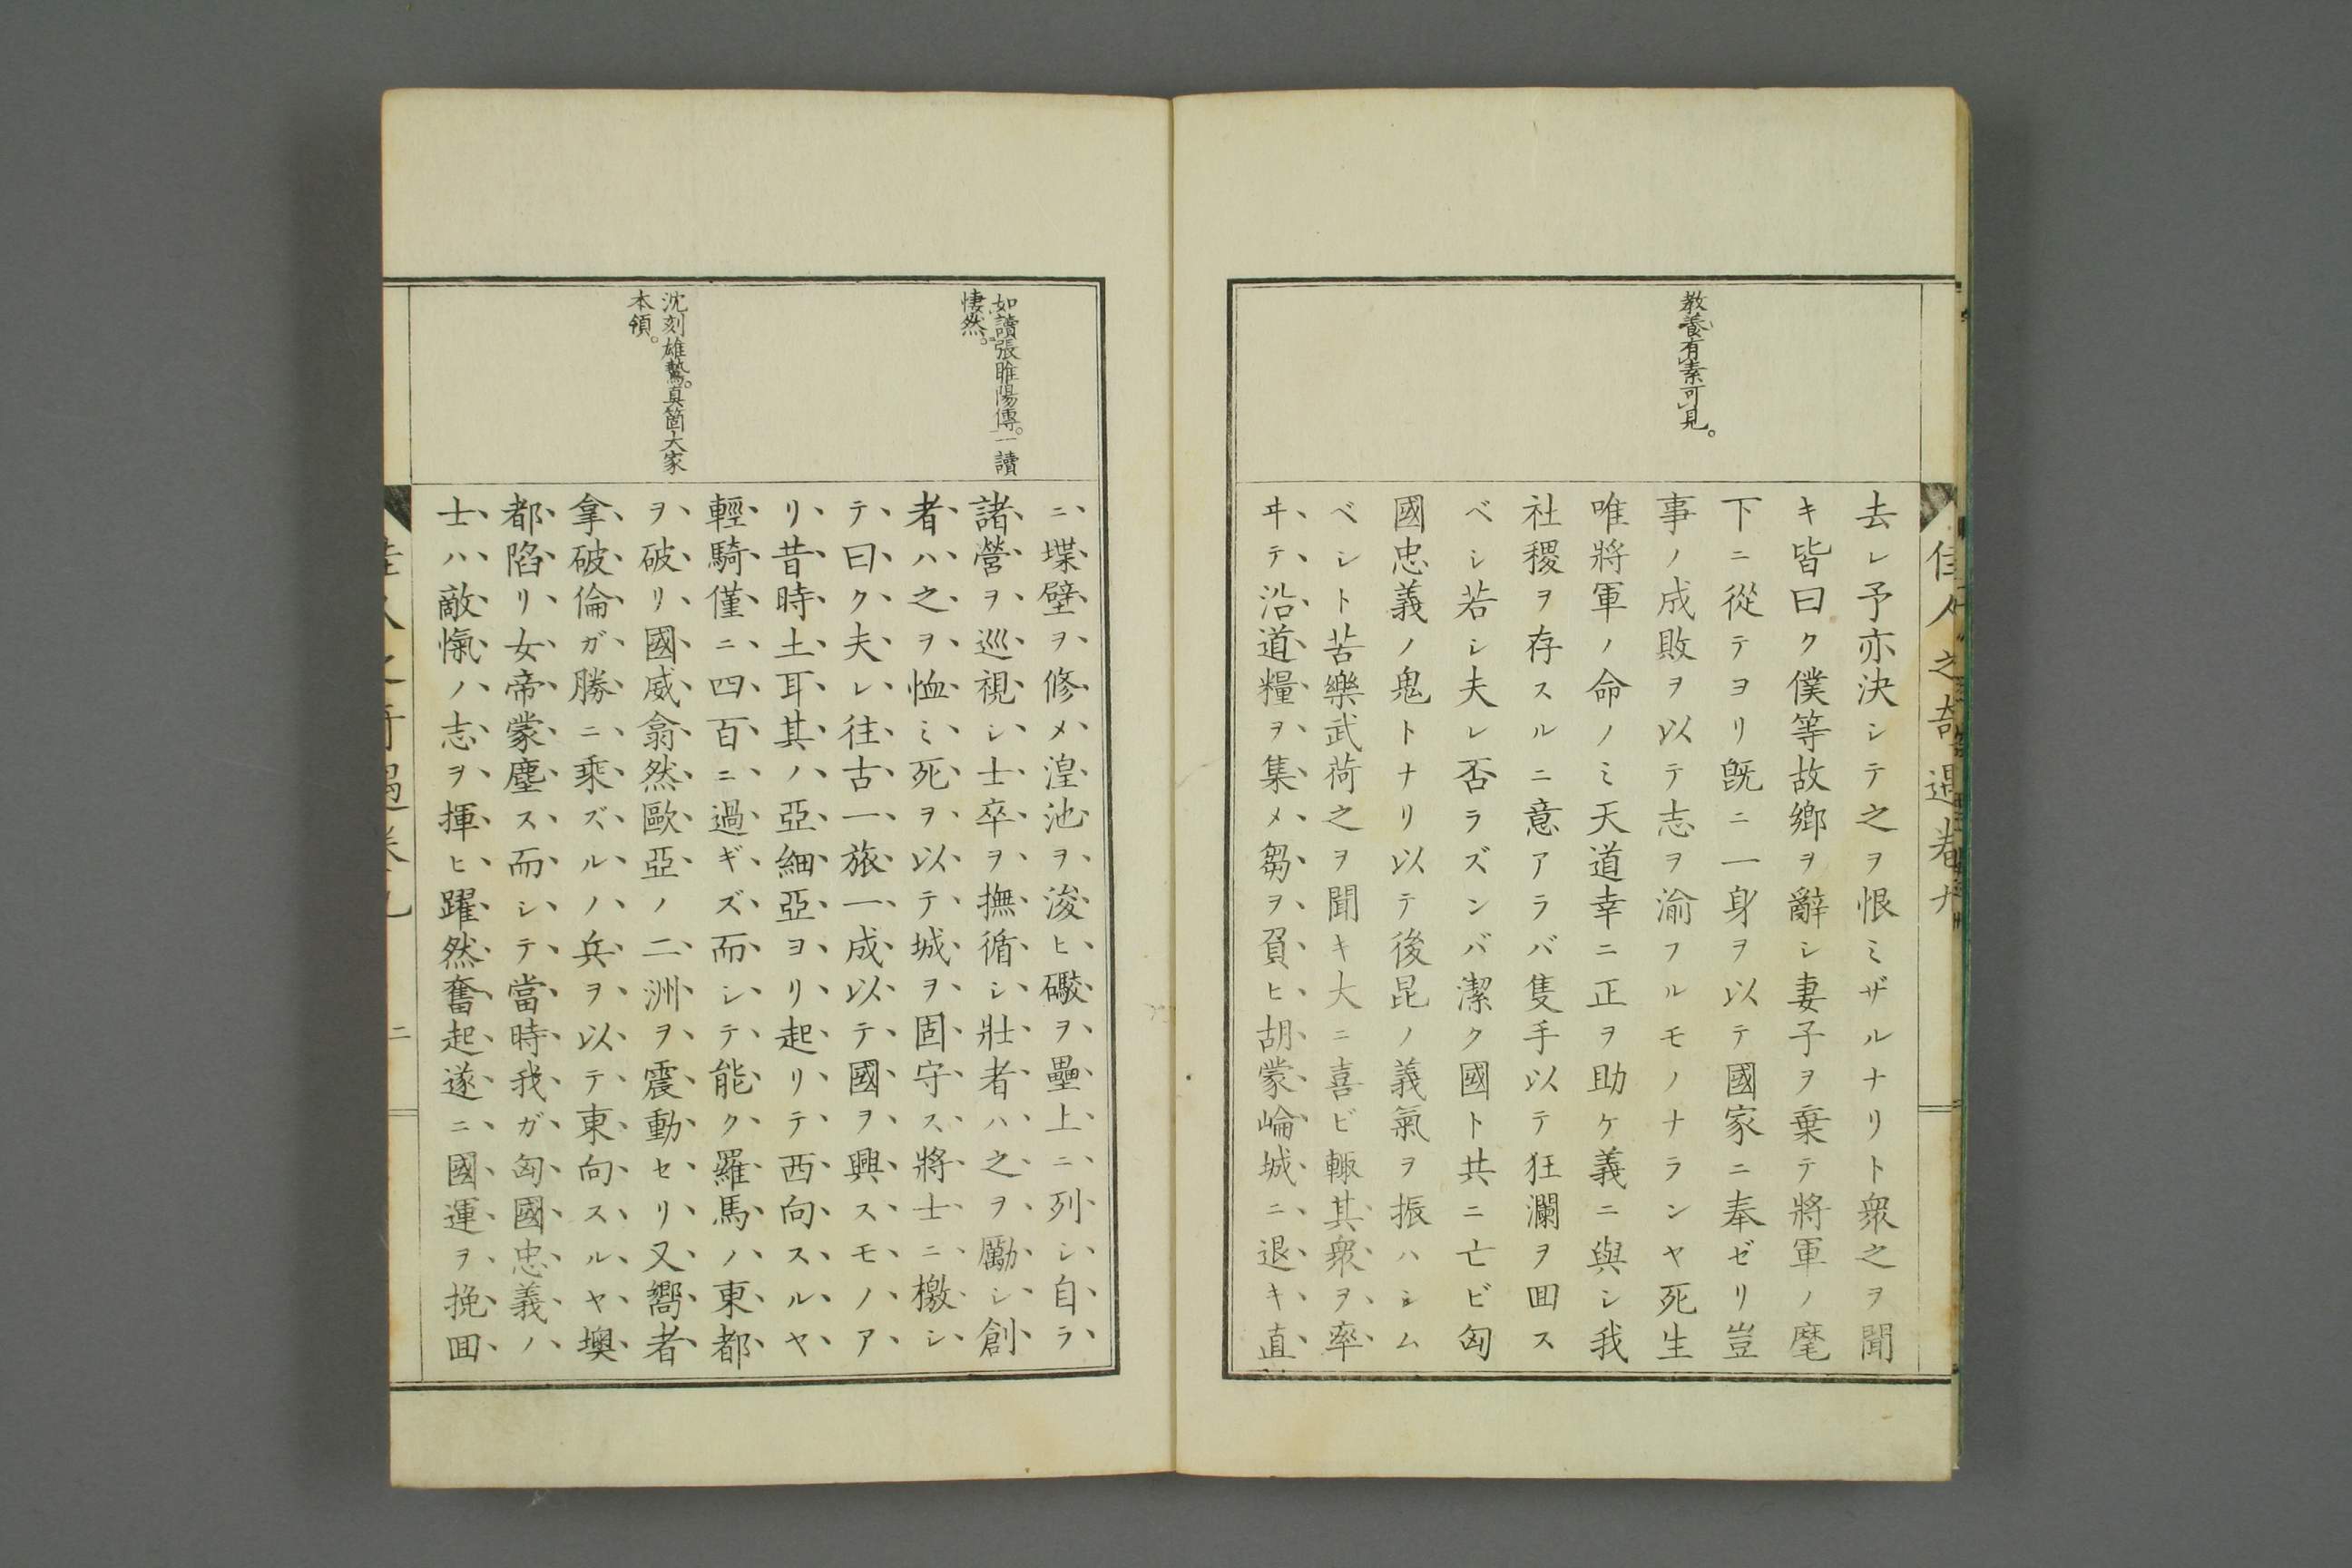 佳人之奇遇卷九
教養有素可見。
去レ予亦決シテ之ヲ恨ミザルナリト衆之ヲ聞
キ皆曰ク僕等故鄕ヲ辭シ妻子ヲ棄テ將軍ノ麾
下ニ從テヨリ旣ニ一身ヲ以テ國家ニ奉ゼリ豈
事ノ成敗ヲ以テ志ヲ渝フルモノナランヤ死生
唯將軍ノ命ノミ天道幸ニ正ヲ助ケ義ニ與シ我
社稷ヲ存スルニ意アラバ隻手以テ狂瀾ヲ回ス
ベシ若シ夫レ否ラズンバ潔ク國ト共ニ亡ビ匈
國忠義ノ鬼トナリ以テ後昆ノ義氣ヲ振ハシム
ベシト苦樂武荷之ヲ聞キ大ニ喜ビ輙其衆ヲ率
ヰテ沿道糧ヲ集メ芻ヲ負ヒ胡蒙崘城ニ退キ直
如讀張睢陽傳。一讀
悽然。
沈刻雄鷙。眞箇大家
本領。
ニ堞壁ヲ修メ湟池ヲ浚ヒ礮ヲ壘上ニ列シ自ラ
諸營ヲ巡視シ士卒ヲ撫循シ壯者ハ之ヲ勵シ創
者ハ之ヲ恤ミ死ヲ以テ城ヲ固守ス將士ニ檄シ
テ曰ク夫レ往古一旅一成以テ國ヲ興スモノア
リ昔時土耳其ノ亞細亞ヨリ起リテ西向スルヤ
輕騎僅ニ四百ニ過ギズ而シテ能ク羅馬ノ東都
ヲ破リ國威翕然歐亞ノ二洲ヲ震動セリ又嚮者
拿破倫ガ勝ニ乘ズルノ兵ヲ以テ東向スルヤ墺
都陷リ女帝蒙塵ス而シテ當時我ガ匈國忠義ノ
士ハ敵愾ノ志ヲ揮ヒ躍然奮起遂ニ國運ヲ挽回
佳人之奇遇卷九
二